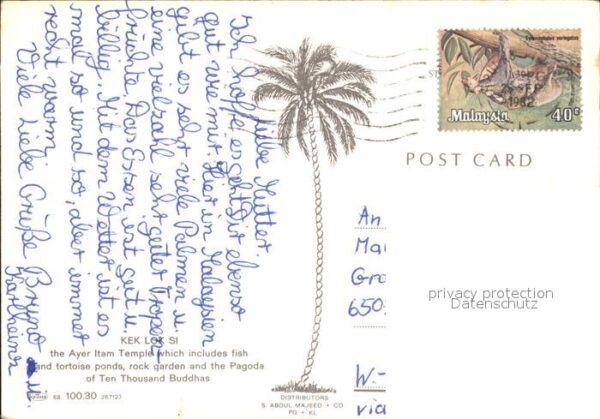 Liebe Mutter.
Ich hoffe es geht Dir ebenso
gut wie mir. Hier in Malaysien
gibt es sehr viele Palmen u.
eine vielzahl sehr guter Tropen
früchte. Das Essen ist gut u.
billig. Mit dem Wetter ist es
mal so und so, aber immer
recht warm.
Viele Liebe Grüße Bruno u.
Karlheinz
Malaysia 40c
1982
POST CARD
An
Ma
Gre
650
W.-
via
privacy protection
Datenschutz
KEK LOK SI
the Ayer Itam Temple which includes fish
and tortoise ponds, rock garden and the Pagoda
of Ten Thousand Buddhas
68 100.30 287127
DISTRIBUTORS
S. ABDUL MAJEED & CO
PG • KL